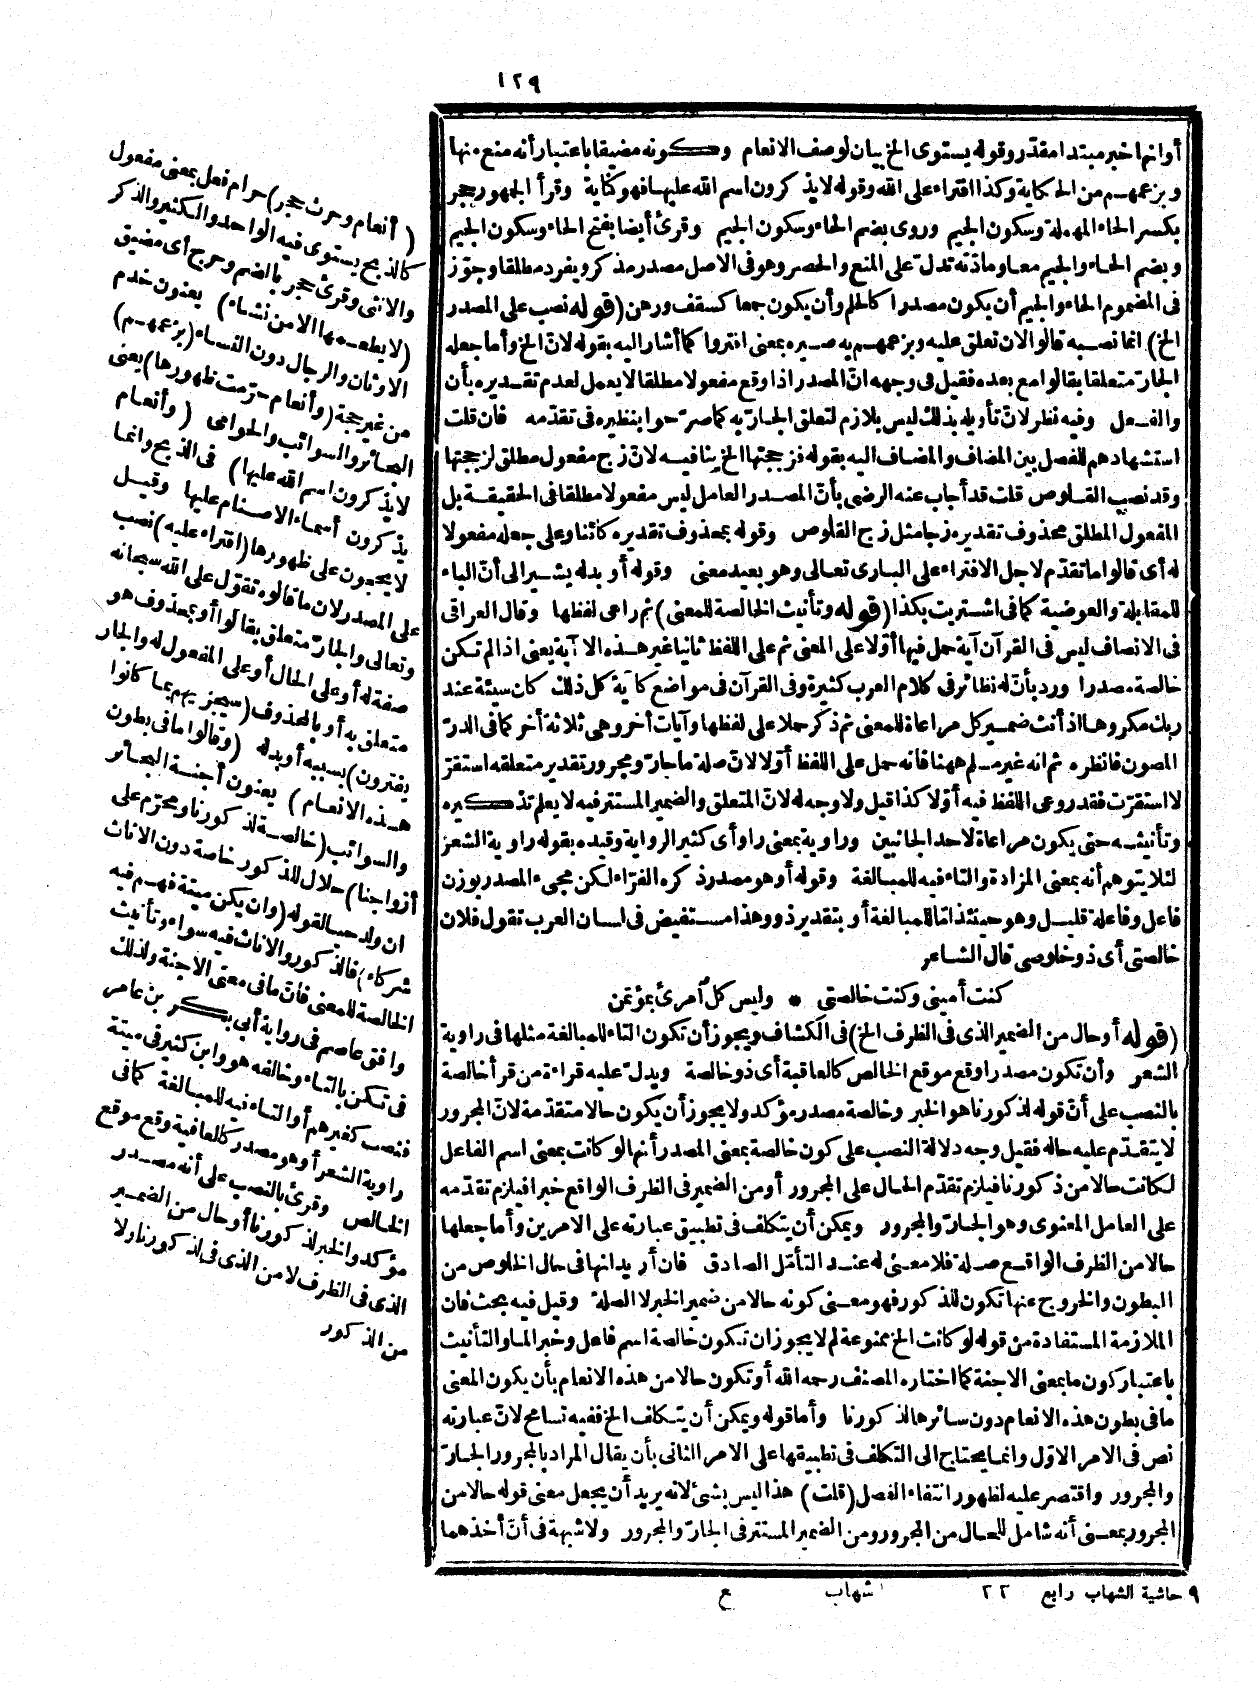 ١٢٩
أوانها خبر مبتدا مقدّر وقوله يستوى الخ بيان لوصف الانعام وكونه مضيقا باعتبار أنه منع منها
وبزعمهم من الحكاية وكذا افتراء على الله وقوله لايذكرون اسم الله عليها فهو كناية وقرأ الجمهور حجر
بكسر الحاء المهملة وسكون الجيم وروى بضم الحاء وسكون الجيم وقرئ أيضا بفتح الحاء وسكون الجيم
وبضم الحاء والجيم معا ومادّته تدلّ على المنع والحصر وهو فى الاصل مصدر مذكر ويفرد مطلقا وجوّز
فى المضموم الحاء والجيم أن يكون مصدرا كالحلم وأن يكون جمعا كسقف ورهن (قوله نصب على المصدر
الخ) انما نصبه قالوا لان تعلق عليه وبزعمهم به صيره بمعنى افتروا كما أشار اليه بقوله لانّ الخ وأما جعله
الجارّ متعلقا بقالوا مع بعده فقيل فى وجهه انّ المصدر اذا وقع مفعولا مطلقا لايعمل لعدم تقديره بأن
والفعل وفيه نظر لانّ تأويله بذلك ليس بلازم لتعلق الجارّ به كما صرّحوا بنظيره فى تقدّمه فان قلت
استشهادهم للفصل بين المضاف والمضاف اليه بقوله فزججتها الخ ينافيه لانّ زج مفعول مطلق لزججتها
وقد نصب القلوص قلت قد أجاب عنه الرضى بأنّ المصدر العامل ليس مفعولا مطلقا فى الحقيقة بل
المفعول المطلق محذوف تقديره زجا مثل زج القلوص وقوله بمحذوف تقديره كائنا وعلى جعله مفعولا
له أى قالوا ما تقدّم لاجل الافتراء على البارى تعالى وهو بعيد معنى وقوله أو بدله يشير الى أنّ الباء
للمقابلة والعوضية كما فى اشتريت بكذا (قوله وتأنيث الخالصة للمعنى) ثم راعى لفظها وقال العراقى
فى الانصاف ليس فى القرآن آية حمل فيها أوّلا على المعنى ثم على اللفظ ثانيا غير هذه الآية يعنى اذا لم تكن
خالصة مصدرا وردّ بأنّ له نظائر فى كلام العرب كثيرة وفى القرآن فى مواضع كآية كل ذلك كان سيئة عند
ربك مكروها اذ أنث ضمير كل مراعاة للمعنى ثم ذكر حملا على لفظها وآيات أخر وهى ثلاثة أخر كما فى الدرّ
المصون فانظره ثم انه غير مسلم ههنا فانه حمل على اللفظ أوّلا لانّ صلة ما جارّ ومجرور تقدير متعلقه استقرّ
لا استقرّت فقد روعى اللفظ فيه أوّلا كذا قيل ولا وجه له لانّ المتعلق والضمير المستتر فيه لايعلم تذكيره
وتأنيثه حتى يكون مراعاة لاحد الجانبين وراوية بمعنى راو أى كثير الرواية وقيده بقوله راوية الشعر
لئلا يتوهم أنه بمعنى المزادة والتاء فيه للمبالغة وقوله أو هو مصدر ذكره الفرّاء لكن مجىء المصدر بوزن
فاعل وفاعلة قليل وهو حينئذ اما للمبالغة أو بتقدير ذو وهذا مستفيض فى لسان العرب تقول فلان
خالصتى أى ذو خلوصى قال الشاعر
كنت أمينى وكنت خالصتى * وليس كل امرئ بمؤتمن
(قوله أو حال من الضمير الذى فى الظرف الخ) فى الكشاف ويجوز أن تكون التاء للمبالغة مثلها فى راوية
الشعر وأن تكون مصدرا وقع موقع الخالص كالعاقبة أى ذو خالصة ويدلّ عليه قراءة من قرأ خالصة
بالنصب على أنّ قوله لذكورنا هو الخبر وخالصة مصدر مؤكد ولايجوز أن يكون حالا متقدّمة لانّ المجرور
لايتقدّم عليه حاله فقيل وجه دلالة النصب على كون خالصة بمعنى المصدر أنها لو كانت بمعنى اسم الفاعل
لكانت حالا من ذكورنا فيلزم تقدّم الحال على المجرور أو من الضمير فى الظرف الواقع خبرا فيلزم تقدّمه
على العامل المعنوى وهو الجارّ والمجرور ويمكن أن يتكلف فى تطبيق عبارته على الامرين وأما جعلها
حالا من الظرف الواقع صلة فلا معنى له عند التأمّل الصادق فان أريد انها فى حال الخلوص من
البطون والخروج عنها تكون للذكور فهو معنى كونه حالا من ضمير الخبر لا الصلة وقيل فيه بحث فان
الملازمة المستفادة من قوله لو كانت الخ ممنوعة لم لايجوز ان تكون خالصة اسم فاعل وخبر الما والتأنيث
باعتبار كون ما بمعنى الاجنة كما اختاره المصنف رحمه الله أو تكون حالا من هذه الانعام بأن يكون المعنى
ما فى بطون هذه الانعام دون سائرها لذكورنا وأما قوله ويمكن أن يتكلف الخ ففيه تسامح لانّ عبارته
نص فى الامر الاوّل وانما يحتاج الى التكلف فى تطبيقها على الامر الثانى بأن يقال المراد بالمجرور الجارّ
والمجرور واقتصر عليه لظهور انتفاء الفصل (قلت) هذا ليس بشئ لانه يريد أن يجعل معنى قوله حالا من
المجرور بمعنى أنه شامل للحال من المجرور ومن الضمير المستتر فى الجارّ والمجرور ولا شبهة فى أنّ أخذهما
(أنعام وحرث حجر) حرام فعل بمعنى مفعول
كالذبح يستوى فيه الواحد والكثير والذكر
والانثى وقرئ حجر بالضم وحرج أى مضيق
(لا يطعمها الا من نشاء) يعنون خدم
الاوثان والرجال دون النساء (بزعمهم)
من غير حجة (وأنعام حرّمت ظهورها) يعنى
البحائر والسوائب والحوامى (وأنعام
لايذكرون اسم الله عليها) فى الذبح وانما
يذكرون أسماء الاصنام عليها وقيل
لايحجون على ظهورها (افتراء عليه) نصب
على المصدر لان ما قالوه تقوّل على الله سبحانه
وتعالى والجارّ متعلق بقالوا أو بمحذوف هو
صفة له أو على الحال أو على المفعول له والجار
متعلق به أو بالمحذوف (سيجزيهم بما كانوا
يفترون) بسببه أو بدله (وقالوا ما فى بطون
هذه الانعام) يعنون أجنة البحائر
والسوائب (خالصة لذكورنا ومحرّم على
أزواجنا) حلال للذكور خاصة دون الاناث
ان ولد حيا لقوله (وان يكن ميتة فهم فيه
شركاء) فالذكور والاناث فيه سواء وتأنيث
الخالصة للمعنى فانّ ما فى معنى الاجنة ولذلك
وافق عاصم فى رواية أبى بكر بن عامر
فى تكن بالتاء وخالفه هو وابن كثير فى ميتة
فنصب كغيرهم أو التاء فيه للمبالغة كما فى
راوية الشعر أو هو مصدر كالعافية وقع موقع
الخالص وقرئ بالنصب على أنه مصدر
مؤكد والخبر لذكورنا أو حال من الضمير
الذى فى الظرف لا من الذى فى لذكورنا ولا
من الذكور
٩ حاشية الشهاب رابع ٢٢ شهاب ع